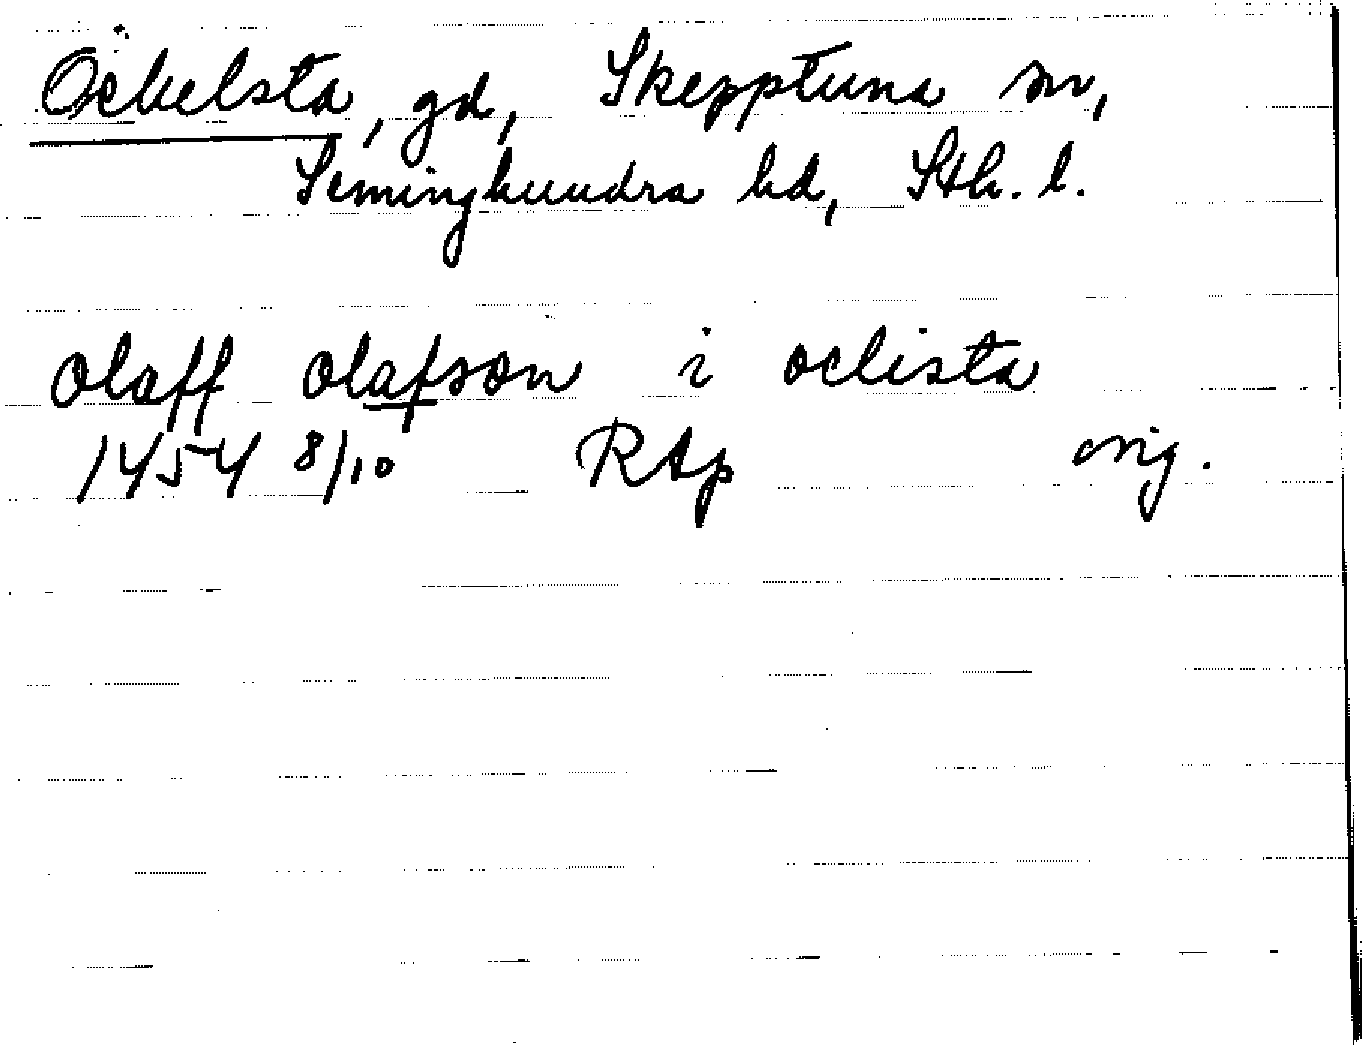 Öckelsta, gd, Skepptuna sn,
Seminghundra hd, Sth. l.
olaff olafson i oclista
1454 8/10 RAp orig.